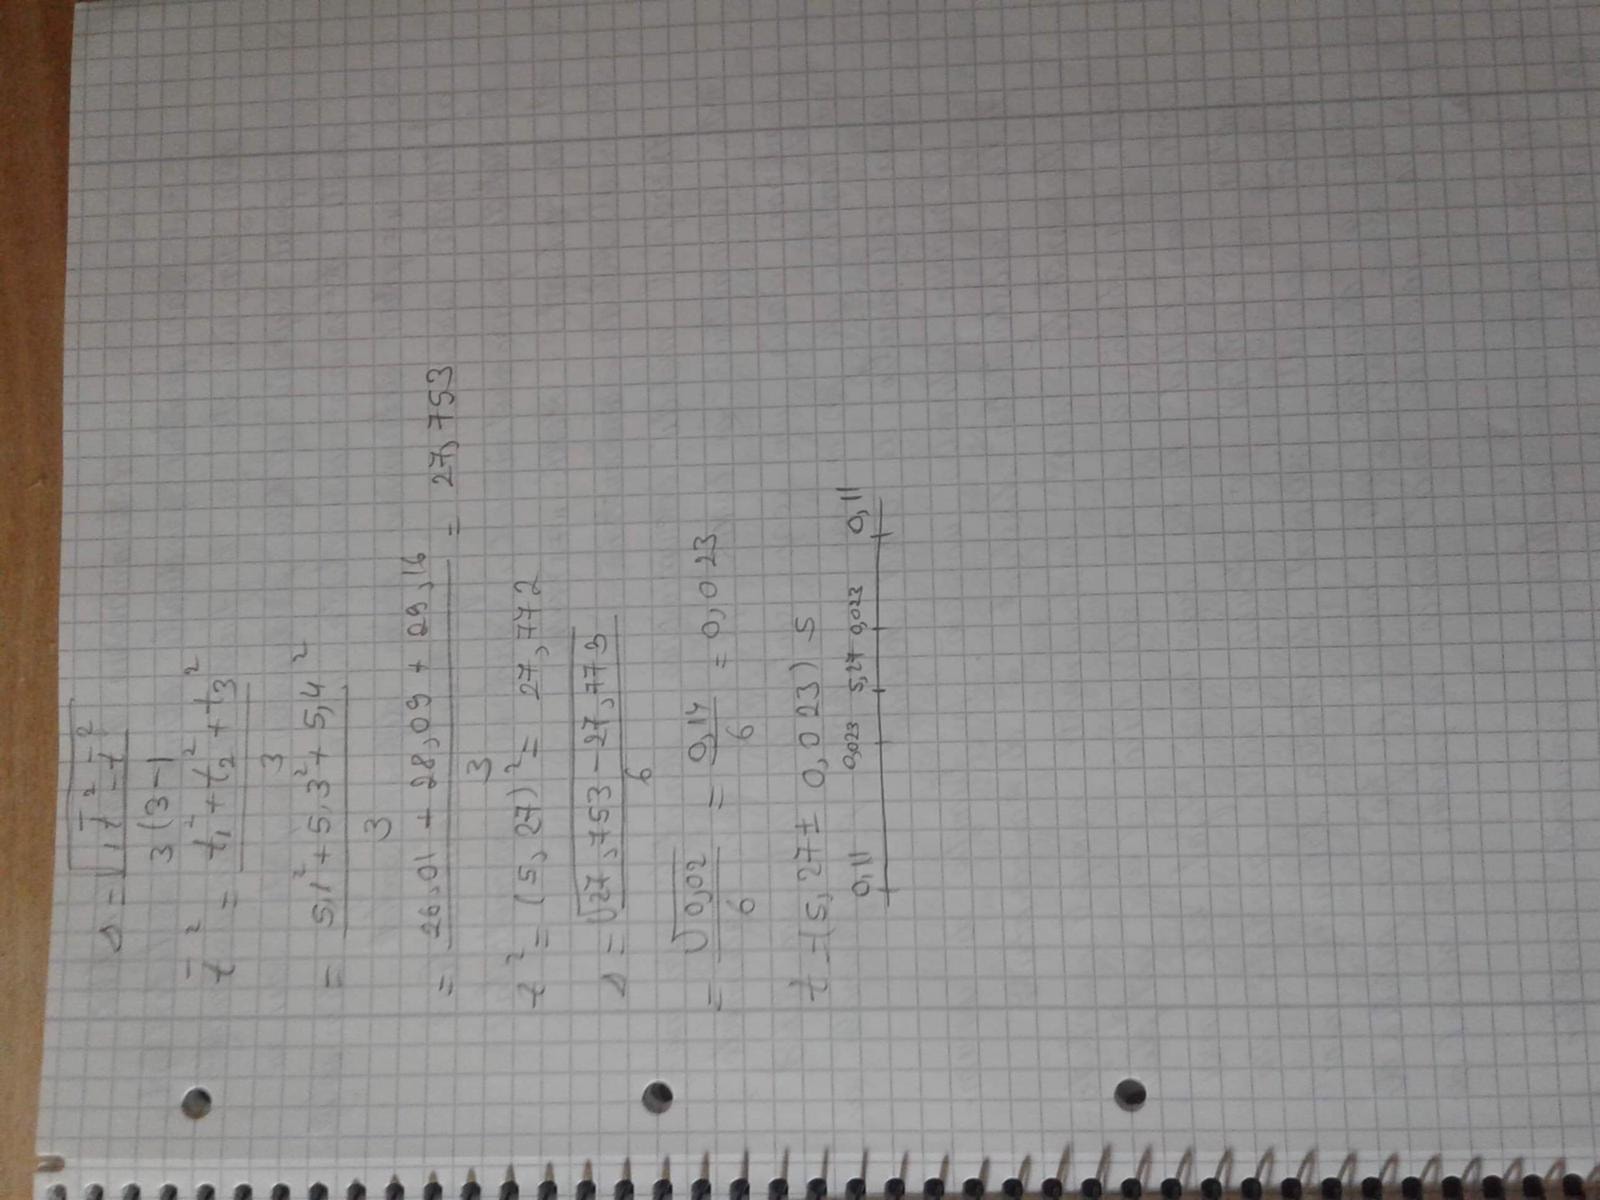 s = √(t̄² - t̄²)
3(3-1
t̄² = t₁² + t₂² + t₃²
3
= 5,1² + 5,3² + 5,4²
3
= 26,01 + 28,09 + 29,16 = 27,753
3
t² = (5,27)² = 27,772
s = √27,753 - 27,773
6
= √0,02 = 0,14 = 0,023
6 6
t = (5,27 ± 0,023) s
0,11 0,023 5,27 0,023 0,11